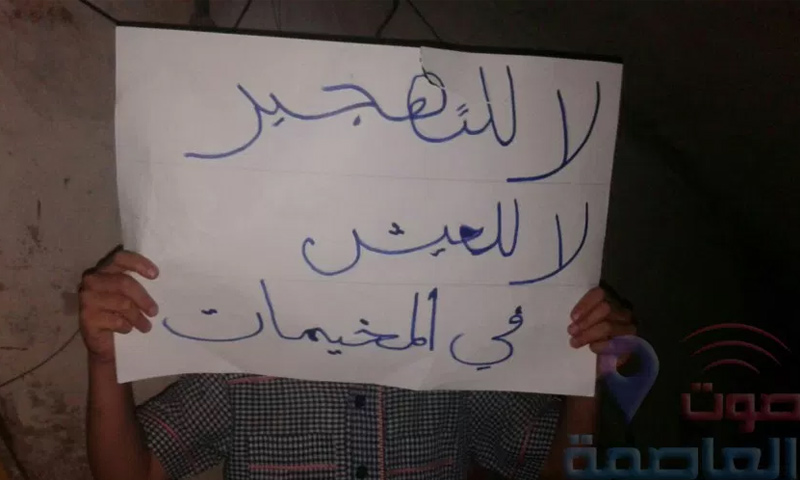 لا للتهجير
لا للعيش
في المخيمات
صوت
العاصمة